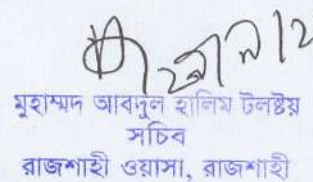 মুহাম্মদ আবদুল হালিম টলষ্টয়
সচিব
রাজশাহী ওয়াসা, রাজশাহী